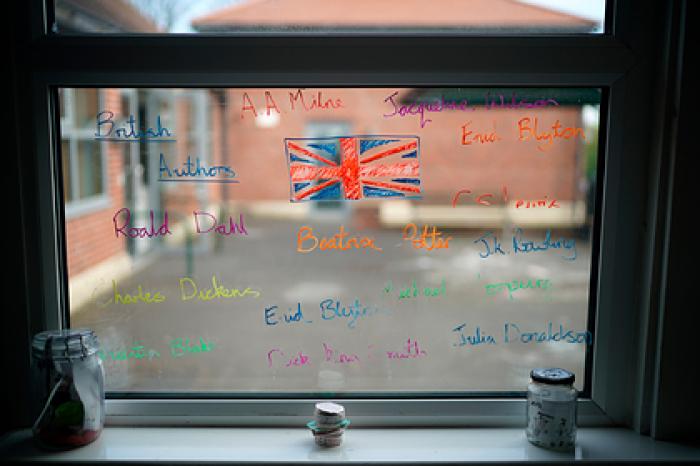 British
Authors
A.A Milne
Jacqueline Wilson
Enid Blyton
Roald Dahl
Beatrix Potter
J.K. Rowling
Charles Dickens
Michael
Enid Blyton
Julia Donaldson
Quentin Blake
Dick